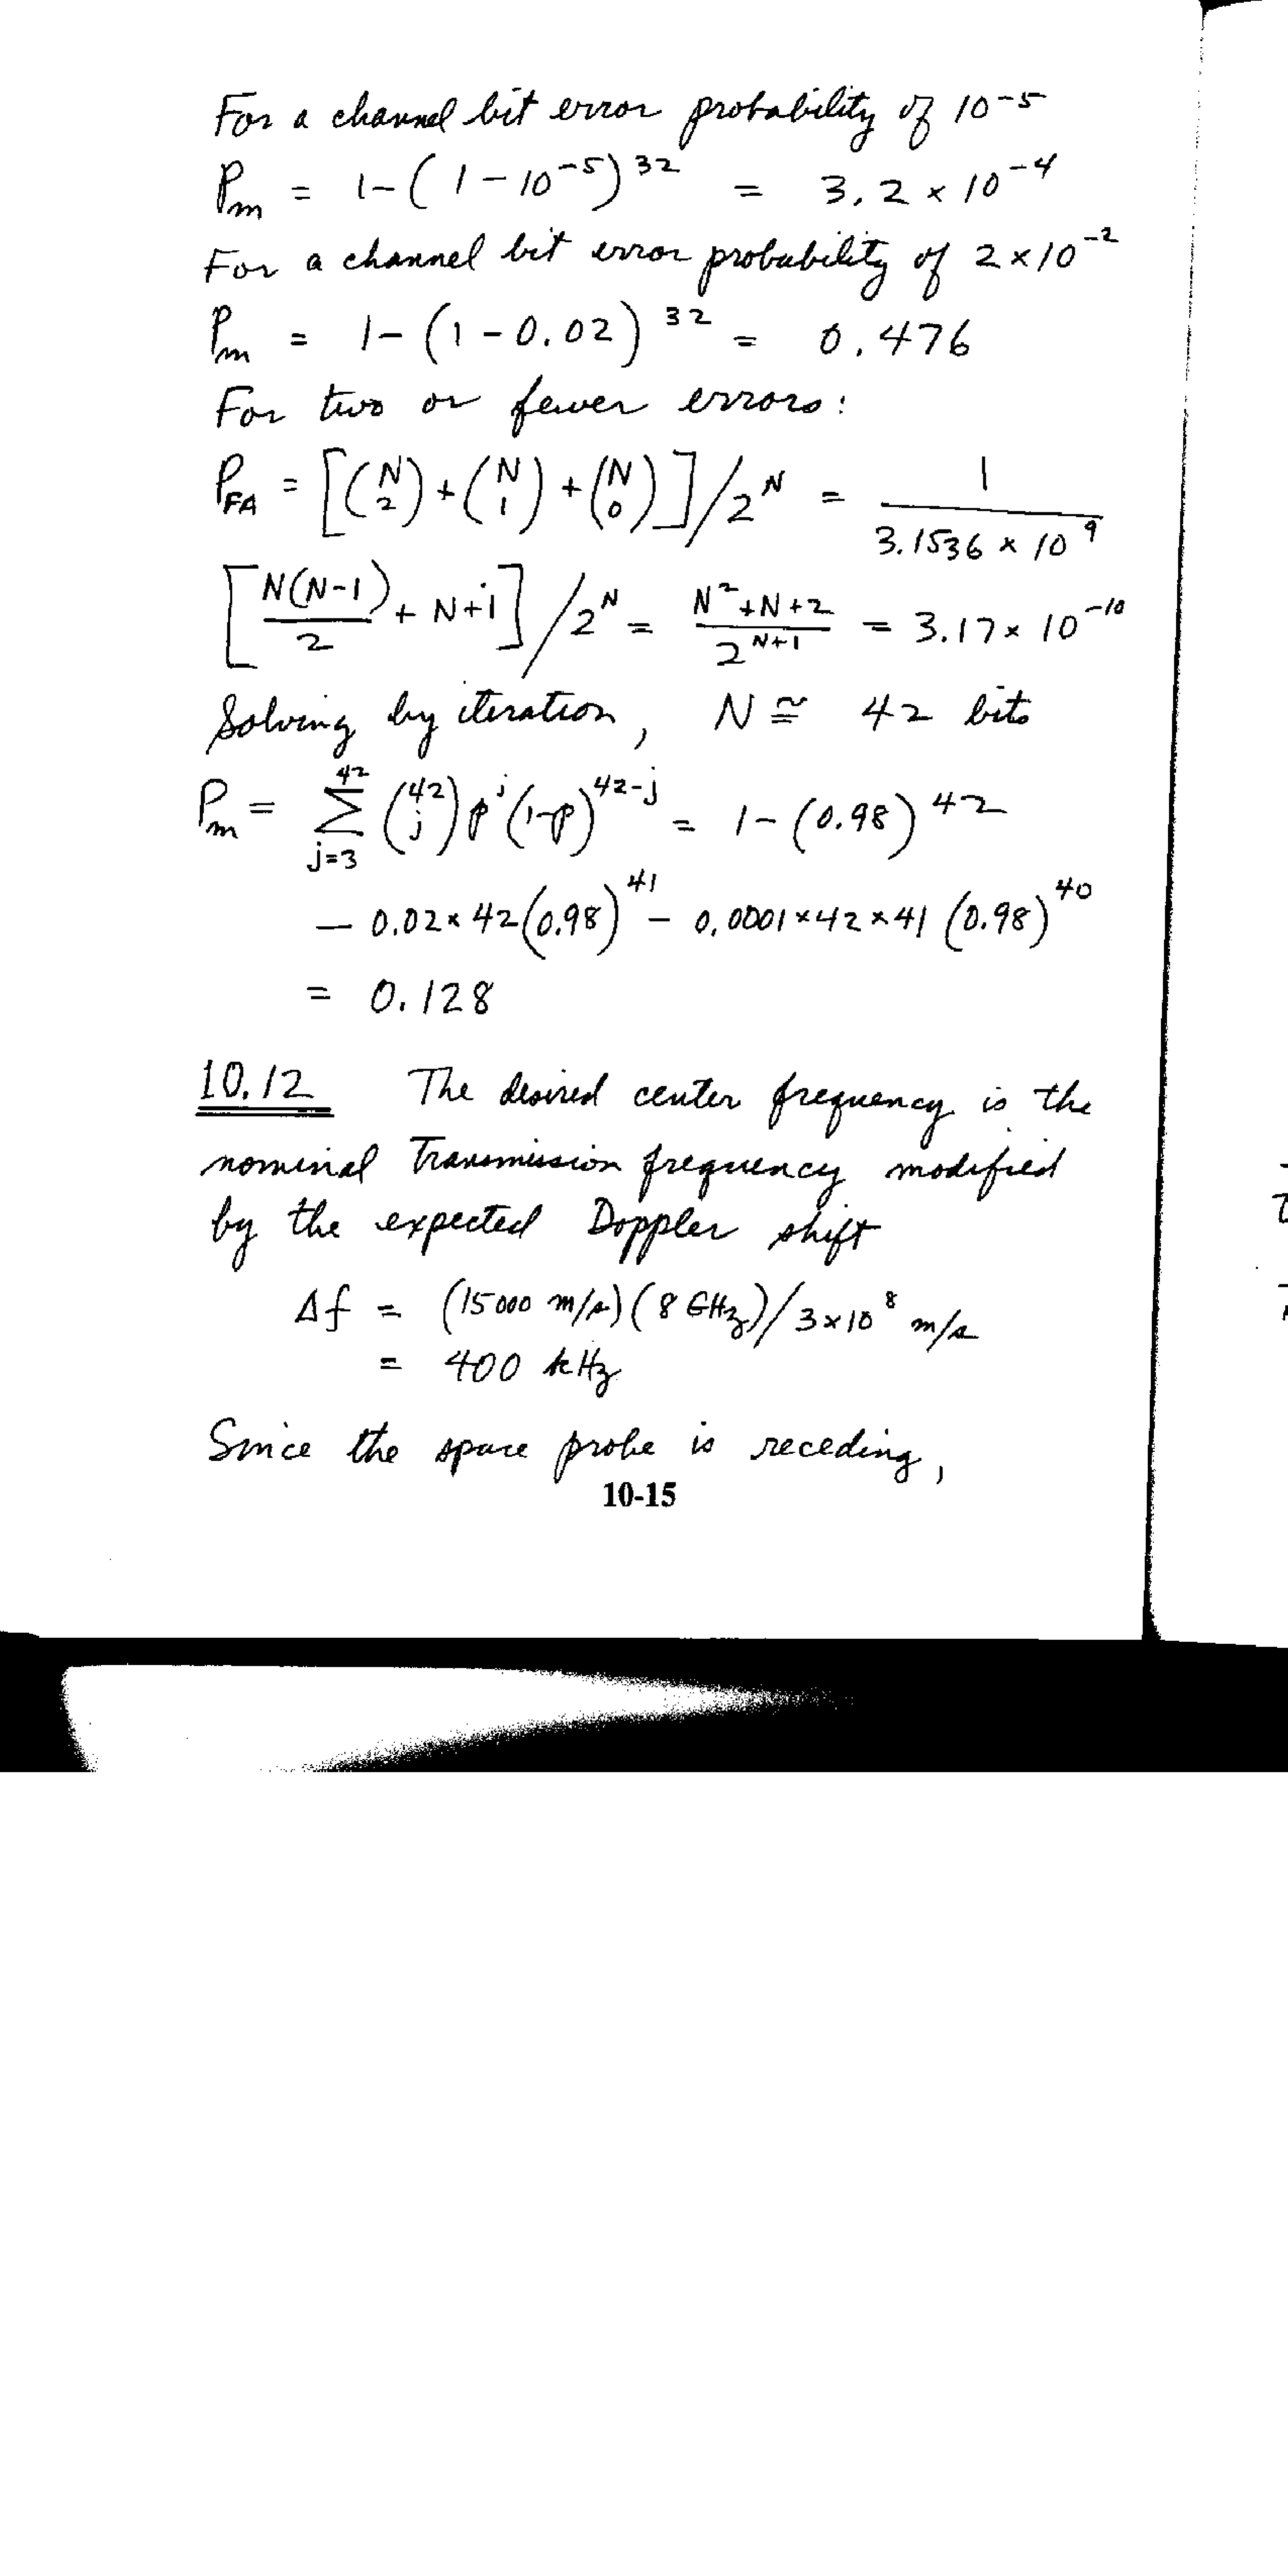 For a channel bit error probability of 10⁻⁵
Pm = 1-(1-10⁻⁵)³² = 3.2 × 10⁻⁴
For a channel bit error probability of 2×10⁻²
Pm = 1-(1-0.02)³² = 0.476
For two or fewer errors:
P_FA = [(N 2)+(N 1)+(N 0)]/2^N = 1/(3.1536 × 10⁹)
[N(N-1)/2 + N+1]/2^N = (N²+N+2)/2^(N+1) = 3.17× 10⁻¹⁰
Solving by iteration, N ≅ 42 bits
Pm = Σ_{j=3}^{42} (42 j) p^j (1-p)^(42-j) = 1-(0.98)⁴²
- 0.02×42(0.98)⁴¹ - 0.0001×42×41 (0.98)⁴⁰
= 0.128
10.12 The desired center frequency is the
nominal Transmission frequency modified
by the expected Doppler shift
Δf = (15000 m/s)(8 GHz)/3×10⁸ m/s
= 400 kHz
Since the space probe is receding,
10-15